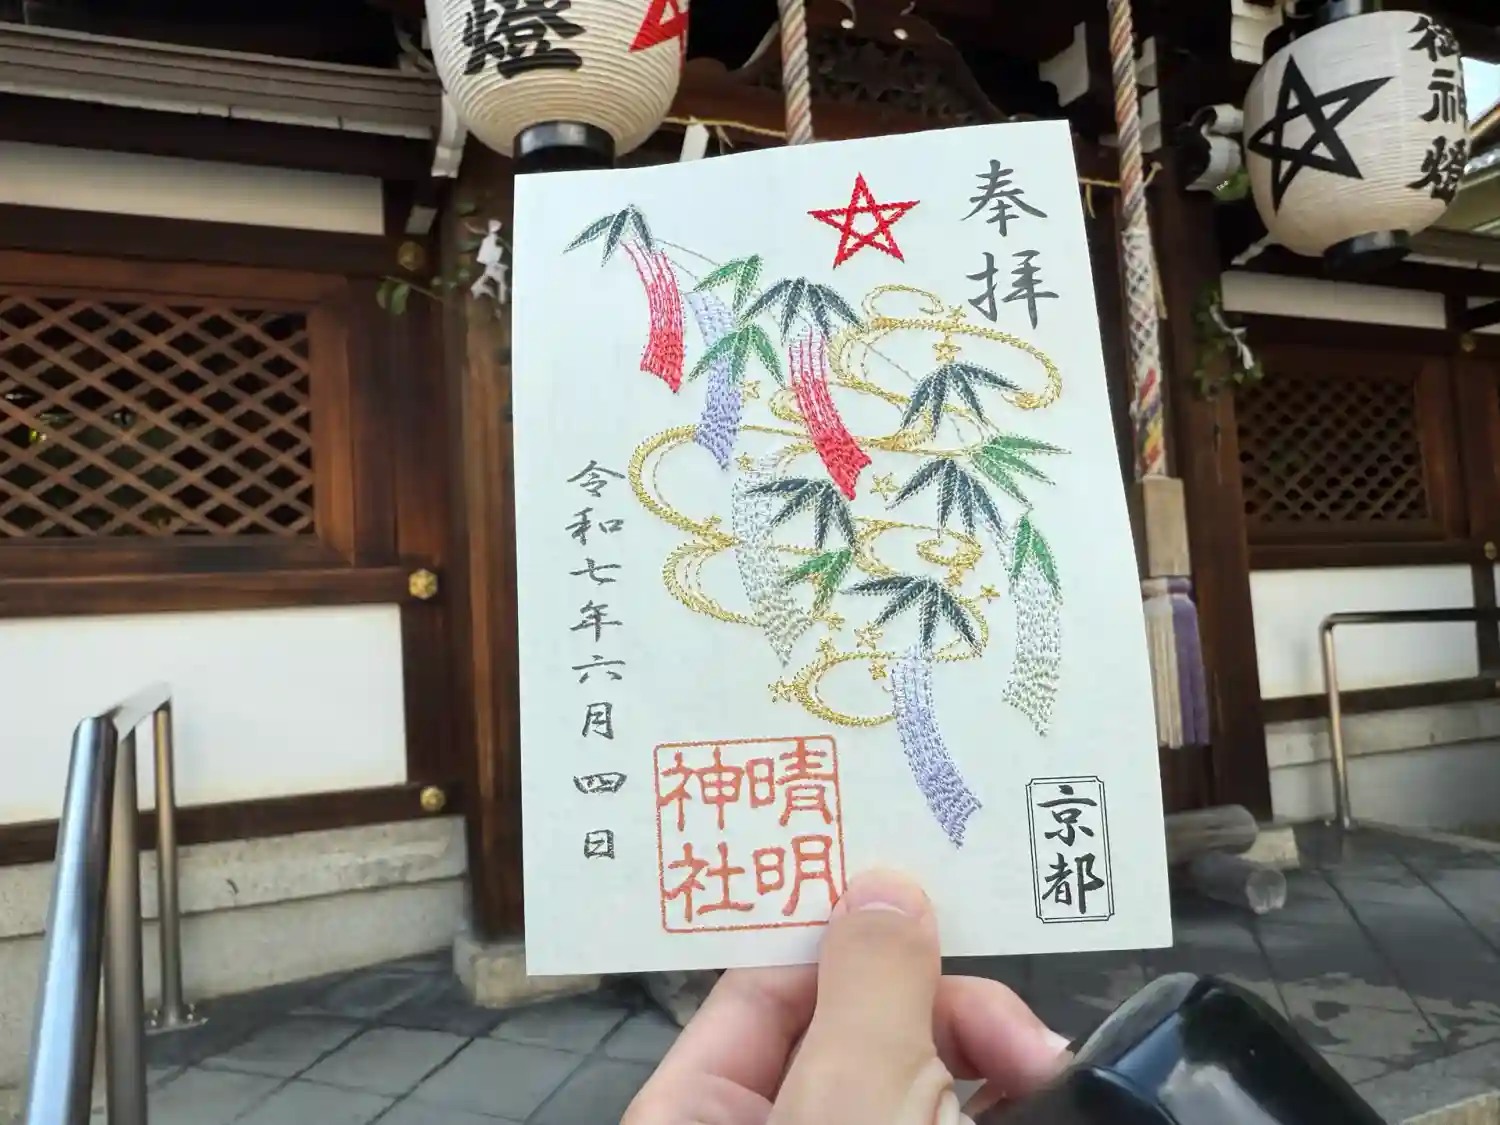 奉拝
令和七年六月四日
晴明
神社
京都
燈
御神燈